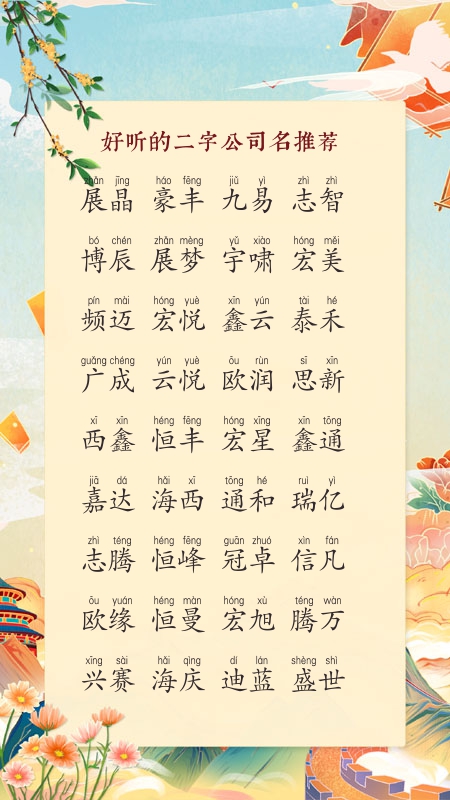 好听的二字公司名推荐
zhǎn jīng háo fēng jiǔ yì zhì zhì
展晶 豪丰 九易 志智
bó chén zhǎn mèng yǔ xiào hóng měi
博辰 展梦 宇啸 宏美
pín mài hóng yuè xīn yún tài hé
频迈 宏悦 鑫云 泰禾
guǎng chéng yún yuè ōu rùn sī xīn
广成 云悦 欧润 思新
xī xīn héng fēng hóng xīng xīn tōng
西鑫 恒丰 宏星 鑫通
jiā dá hǎi xī tōng hé ruì yì
嘉达 海西 通和 瑞亿
zhì téng héng fēng guān zhuó xìn fán
志腾 恒峰 冠卓 信凡
ōu yuán héng màn hóng xù téng wàn
欧缘 恒曼 宏旭 腾万
xīng sài hǎi qìng dí lán shèng shì
兴赛 海庆 迪蓝 盛世